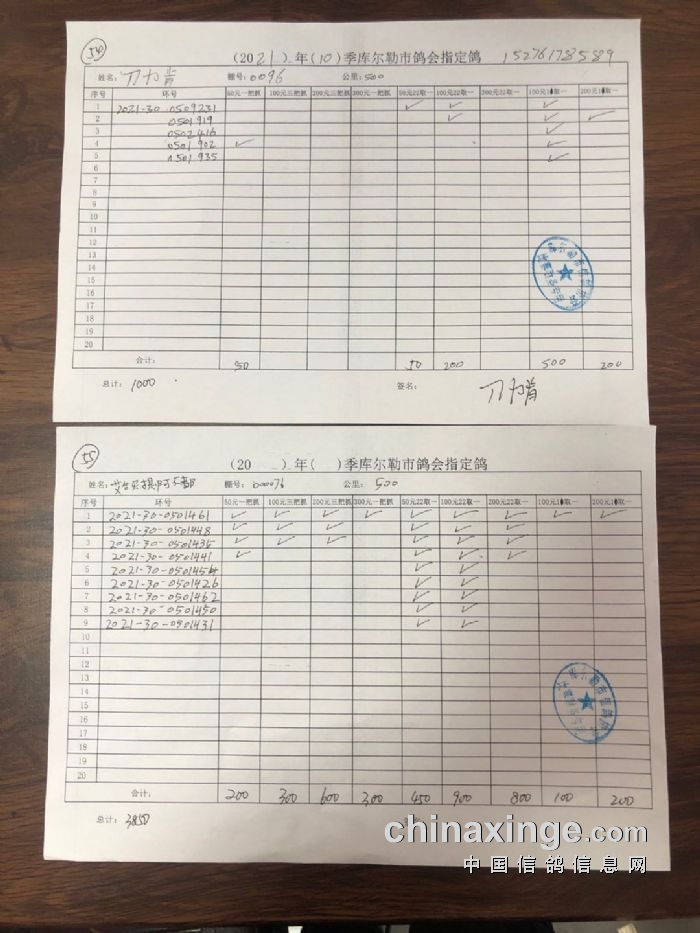 54
(2021) 年(10)季库尔勒市鸽会指定鸽 15276178589
姓名: 刀力肯 棚号:0096 公里:500
序号 环号 50元一把抓 100元三把抓 200元三把抓 300元一把抓 50元22取一 100元22取一 200元22取一 100元10取一 200元10取一
1 2021-30-0509231 ✓ ✓ ✓
2 0501919 ✓ ✓ ✓
3 0502416 ✓
4 0501902 ✓ ✓
5 0501935 ✓
6
7
8
9
10
11
12
13
14
15
16
17
18
19
20
合计: 50 50 200 500 200
总计: 1000 签名: 刀力肯
55
(20 ) 年( )季库尔勒市鸽会指定鸽
姓名: 棚号:000076 公里:500
序号 环号 50元一把抓 100元三把抓 200元三把抓 300元一把抓 50元22取一 100元22取一 200元22取一 100元10取一 200元10取一
1 2021-30-0501461 ✓ ✓ ✓ ✓ ✓ ✓ ✓ ✓ ✓
2 2021-30-0501448 ✓ ✓ ✓ ✓ ✓ ✓
3 2021-30-0501435 ✓ ✓ ✓ ✓ ✓ ✓
4 2021-30-0501441 ✓ ✓ ✓ ✓
5 2021-30-0501454 ✓ ✓
6 2021-30-0501426 ✓ ✓
7 2021-30-0501462 ✓ ✓
8 2021-30-0501450 ✓ ✓
9 2021-30-0501431 ✓ ✓
10
11
12
13
14
15
16
17
18
19
20
合计: 200 300 600 300 450 900 800 100 200
总计: 3850
chinaxinge.com
中国信鸽信息网